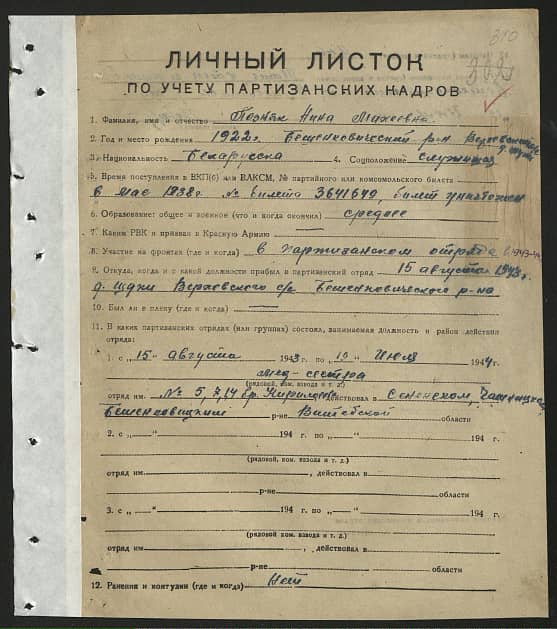 310
ЛИЧНЫЙ ЛИСТОК
ПО УЧЕТУ ПАРТИЗАНСКИХ КАДРОВ
1. Фамилия, имя и отчество Позняк Нина Михеевна
2. Год и место рождения 1922г. Бешенковический р-н
3. Национальность Беларусска 4. Соцположение служащая
5. Время поступления в ВКП(б) или ВЛКСМ, № партийного или комсомольского билета
в мае 1938г. № билета 3641649, билет уничтожен
6. Образование: общее и военное (что и когда окончил) среднее
7. Каким РВК и призван в Красную Армию
8. Участие на фронтах (где и когда) в партизанском отряде с 1943-44
9. Откуда, когда и с какой должности прибыл в партизанский отряд 15 августа 1943г.
д. Бешенковического р-на
10. Был ли в плену (где и когда)
11. В каких партизанских отрядах (или группах) состоял, занимаемая должность и район действия
отряда:
1. с „15“ августа 1943 г. по „10“ Июля 1944 г.
мед-сестра
(рядовой, ком. взвода и т. д.)
отряд им. № 5, 7, 14 бр. действовал в Сененском,
Бешенковицким р-не Витебской области
2. с „ “ 194 г. по „ “ 194 г.
(рядовой, ком. взвода и т. д.)
отряд им. , действовал в
р-не области
3. с „ “ 194 г. по „ “ 194 г.
(рядовой, ком. взвода и т. д.)
отряд им. , действовал в
р-не области
12. Ранения и контузии (где и когда) Нет